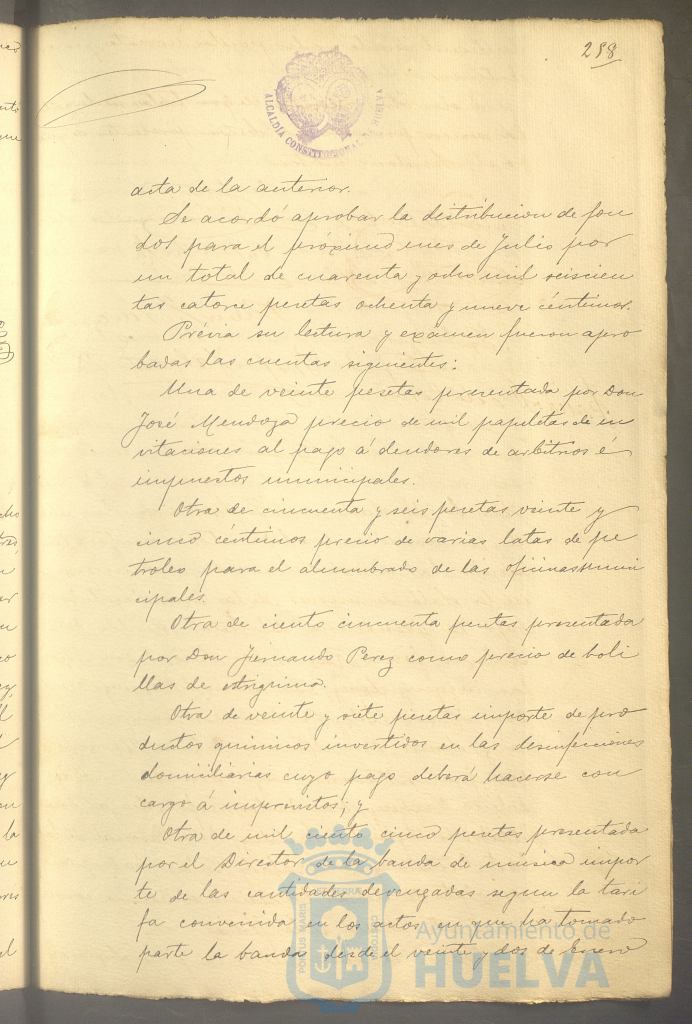 258
ALCALDIA CONSTITUCIONAL HUELVA
acta de la anterior.
Se acordó aprobar la distribucion de fon
dos para el próximo mes de Julio por
un total de cuarenta y ocho mil seiscien
tas catorce pesetas ochenta y nueve céntimos.
Prévia su lectura y exámen fueron apro
badas las cuentas siguientes:
Una de veinte pesetas presentada por Don
José Mendoza precio de mil papeletas de in
vitaciones al pago á deudores de arbitrios é
impuestos municipales.
Otra de cincuenta y seis pesetas veinte y
cinco céntimos precio de varias latas de pe
troleo para el alumbrado de las oficinas muni
cipales.
Otra de ciento cincuenta pesetas presentada
por Don Fernando Perez como precio de boli
llas de estrignina.
Otra de veinte y siete pesetas importe de pro
ductos quimicos invertidos en las desinfecciones
domiciliarias cuyo pago deberá hacerse con
cargo á imprevistos; y
Otra de mil ciento cinco pesetas presentada
por el Director de la banda de música impor
te de las cantidades devengadas segun la tari
fa convenida en los actos en que ha tomado
parte la banda desde el veinte y dos de Enero
PORTUS MARIS ET TERRAE CUSTODIA
Ayuntamiento de
HUELVA